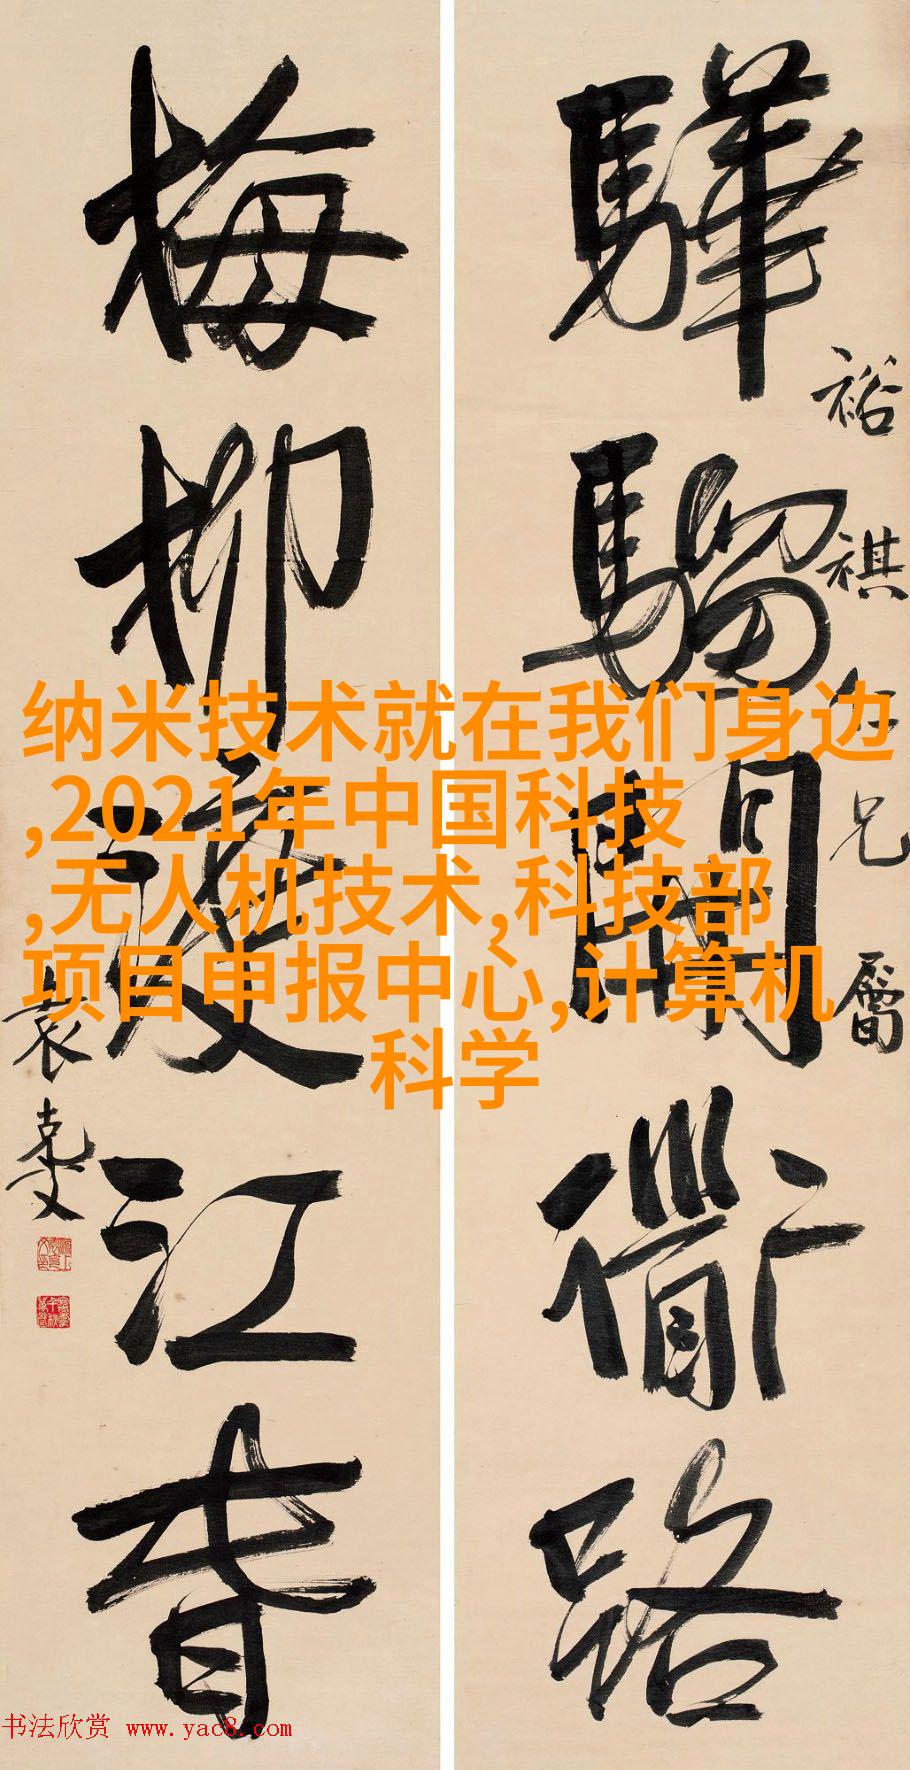 驊騮開衜路
裕祺仁兄屬
梅柳渡江春
袁克文
纳米技术就在我们身边
,2021年中国科技
,无人机技术,科技部
项目申报中心,计算机
科学
书法欣赏 www.yac8.com